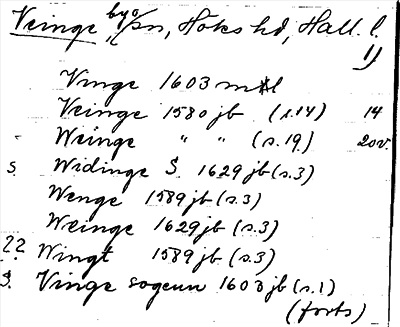 Veinge by o/sn, Höks hd, Hall. l.
1)
Vinge 1603 mtl
Veinge 1580 jb (s.14) 14
Weinge " " (s.19) 20v.
s. Widinge S. 1629 jb (s.3)
Wenge 1589 jb (s.3)
Weinge 1629 jb (s.3)
22 Wingt 1589 jb (s.3)
S. Vinge sogenn 1603 jb (s.1)
(forts)